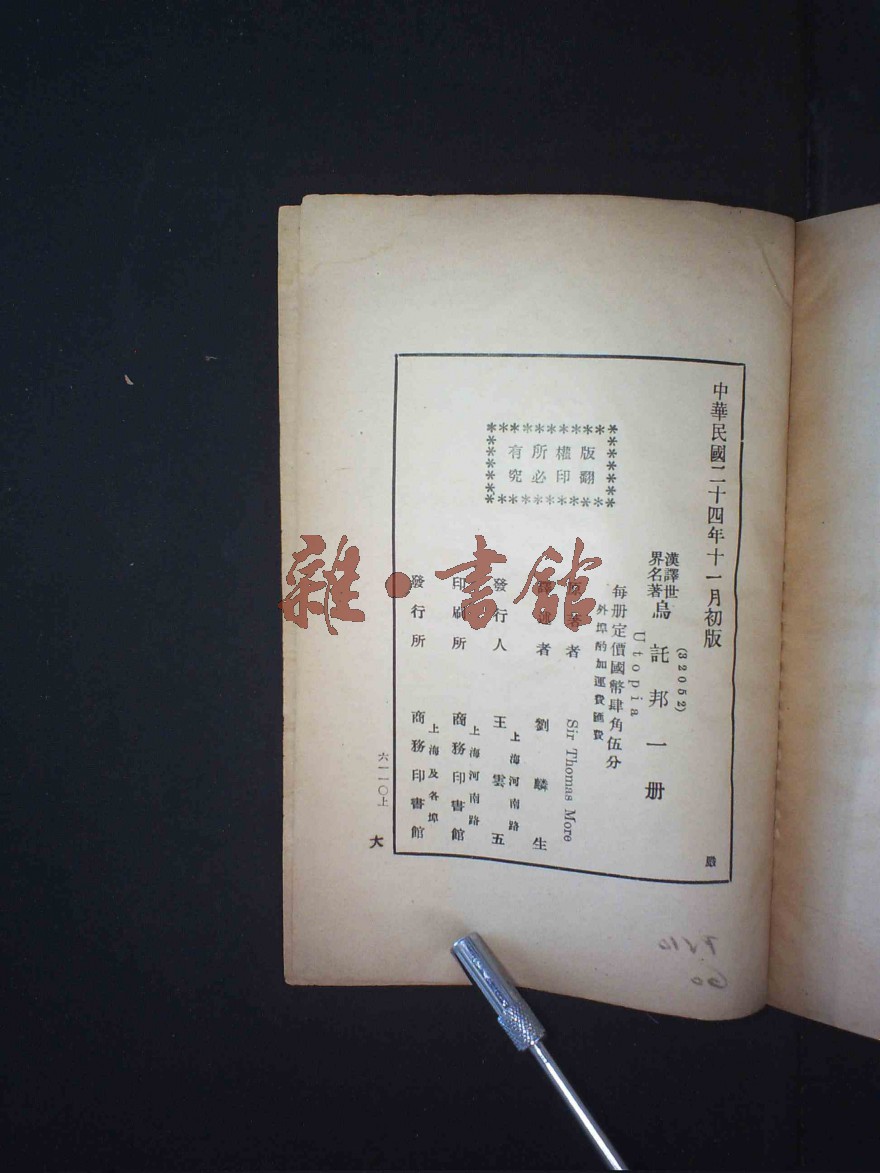 中華民國二十四年十一月初版
(32052)
漢譯世界名著 烏託邦 一册
Utopia
每册定價國幣肆角伍分
外埠酌加運費匯費
原著者 Sir Thomas More
譯述者 劉麟生
上海河南路
發行人 王雲五
上海河南路
印刷所 商務印書館
上海及各埠
發行所 商務印書館
版權所有
翻印必究
六一一〇上
大
雜·書館